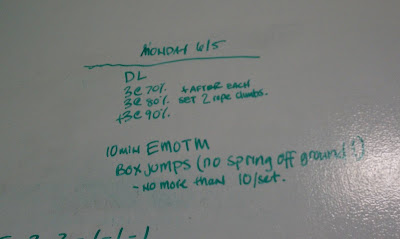 MONDAY 6/5
DL
3@70% * AFTER EACH
3@80% SET 2 rope climbs.
+3@90%
10 min EMOTM
BOX JUMPS (no spring off ground!)
- NO more than 10/set.